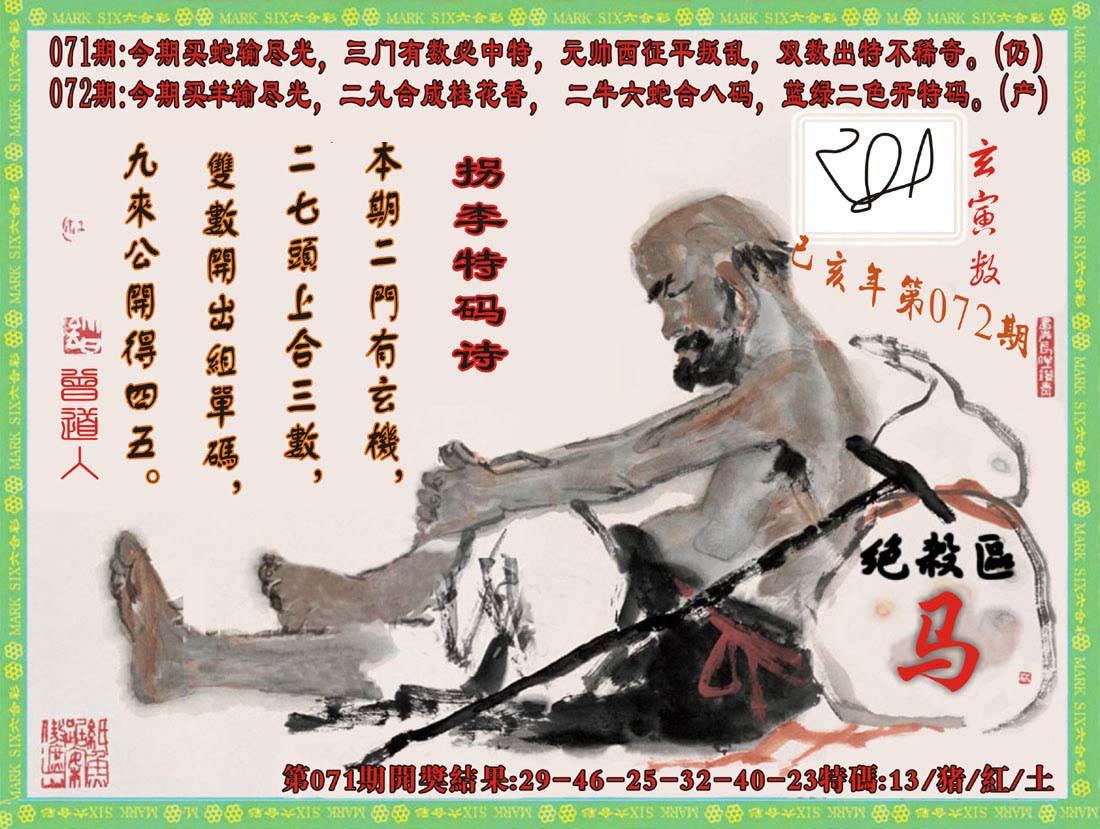 MARK SIX六合彩
071期:今期买蛇输尽光，三门有数必中特，元帅西征平叛乱，双数出特不稀奇。(仍)
072期:今期买羊输尽光，二九合成桂花香，二牛六蛇合八码，蓝绿二色开特码。(产)
玄寅数
己亥年第072期
拐李特码诗
本期二門有玄機，
二七頭上合三數，
雙數開出組單碼，
九來公開得四五。
曾道人
绝殺區
马
第071期開獎結果:29-46-25-32-40-23特碼:13/豬/紅/土